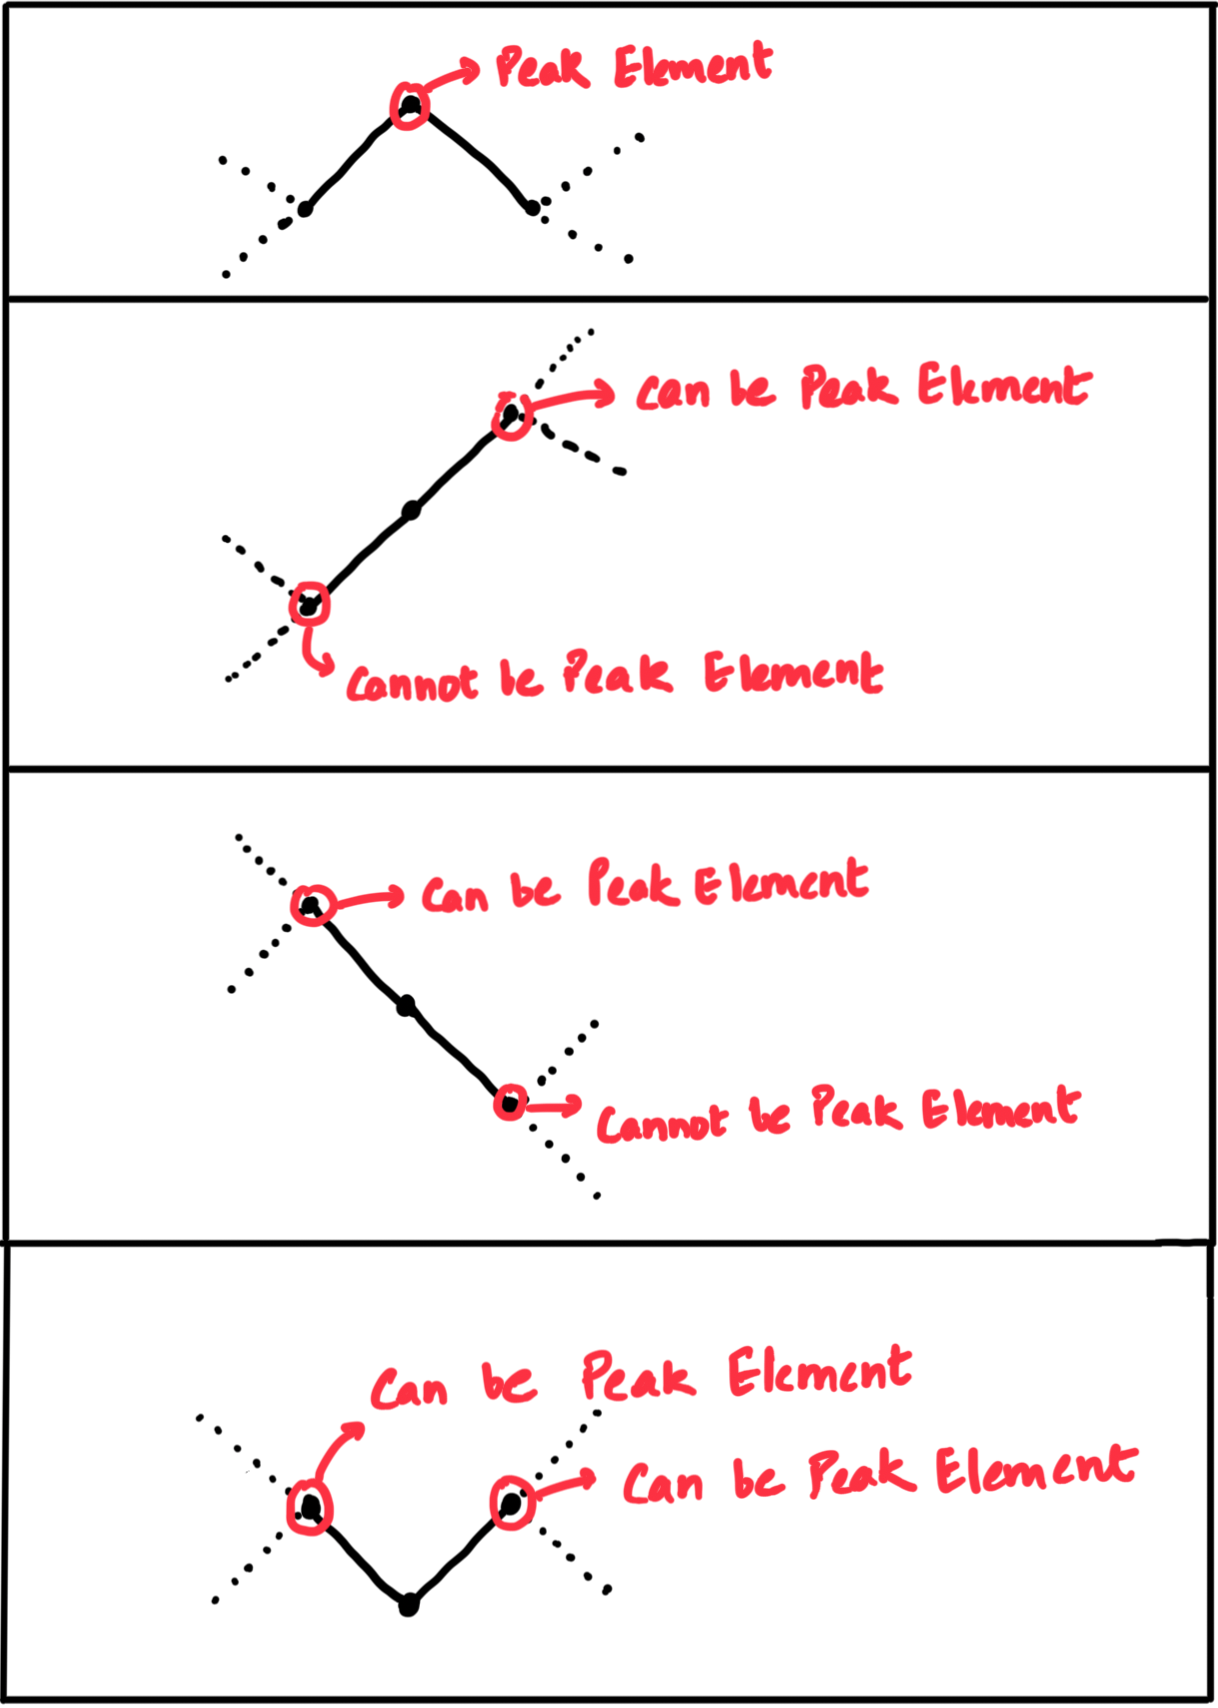 Peak Element
Can be Peak Element
Cannot be Peak Element
Can be Peak Element
Cannot be Peak Element
Can be Peak Element
Can be Peak Element